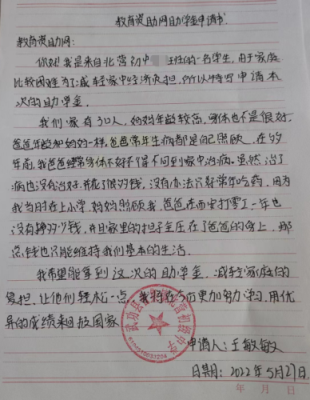 教育资助网助学金申请书
教育资助网：
你好 我是来自北营初中 班的一名学生，由于家庭
比较困难 为了减轻家中经济负担，所以特写申请本
次的助学金。
我们家有3口人，妈妈年龄较高，身体也不是很好，
爸爸年龄和妈妈一样，爸爸常年生病都是自己照顾，在99
年底 我爸爸身体不好不得不回到家中治病，虽然治了
病也没有治好，并花了很多钱，没有办法只好常年吃药，因为
我当时在上小学，妈妈照顾我，爸爸在西安打零工一年也
没有挣多少钱，并且家里的担子全压在了爸爸的身上，那
点钱也只能维持我们基本的生活。
我希望能拿到这次的助学金，减轻家庭的
负担，让他们轻松一点，我将会更加努力学习，用优
异的成绩来回报国家
申请人：王敏敏
日期：2022年5月27日
年 月 日